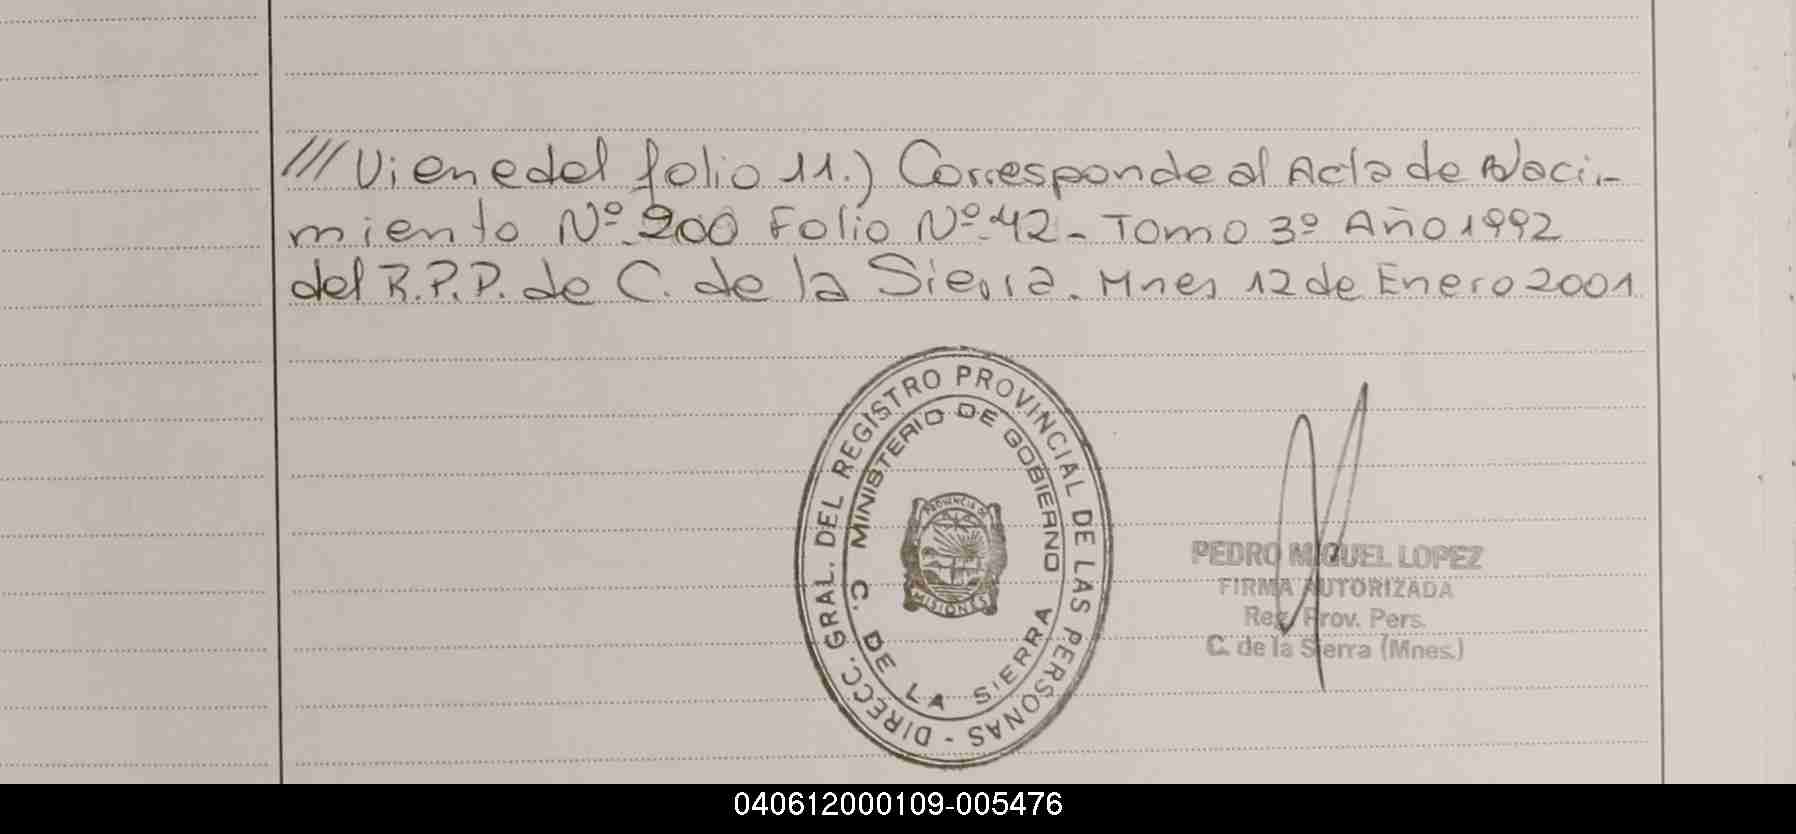 /// Viene del folio 11.) Corresponde al Acta de Naci-
miento Nº 200 Folio Nº 42 - Tomo 3º Año 1992
del R.P.P. de C. de la Sierra. Mnes 12 de Enero 2001
DIRECC. GRAL. DEL REGISTRO PROVINCIAL DE LAS PERSONAS -
MINISTERIO DE GOBIERNO
PROVINCIA DE
MISIONES
C. DE LA SIERRA
PEDRO MIGUEL LOPEZ
FIRMA AUTORIZADA
Reg. Prov. Pers.
C. de la Sierra (Mnes.)
040612000109-005476